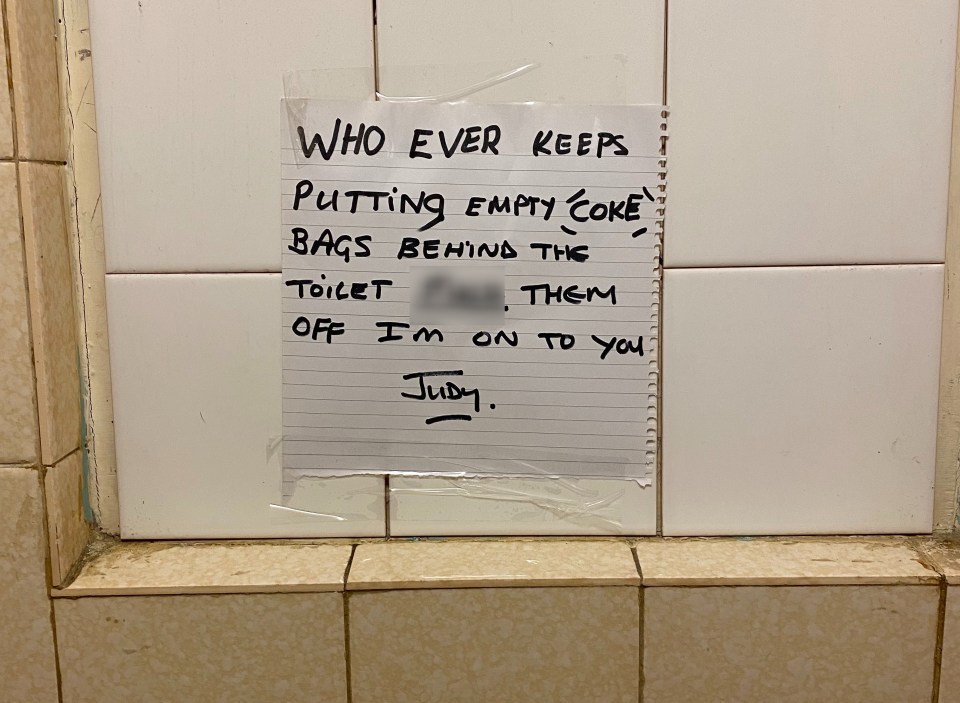 WHO EVER KEEPS
PUTTING EMPTY "COKE"
BAGS BEHIND THE
TOILET . THEM
OFF I'M ON TO YOU
JUDY.